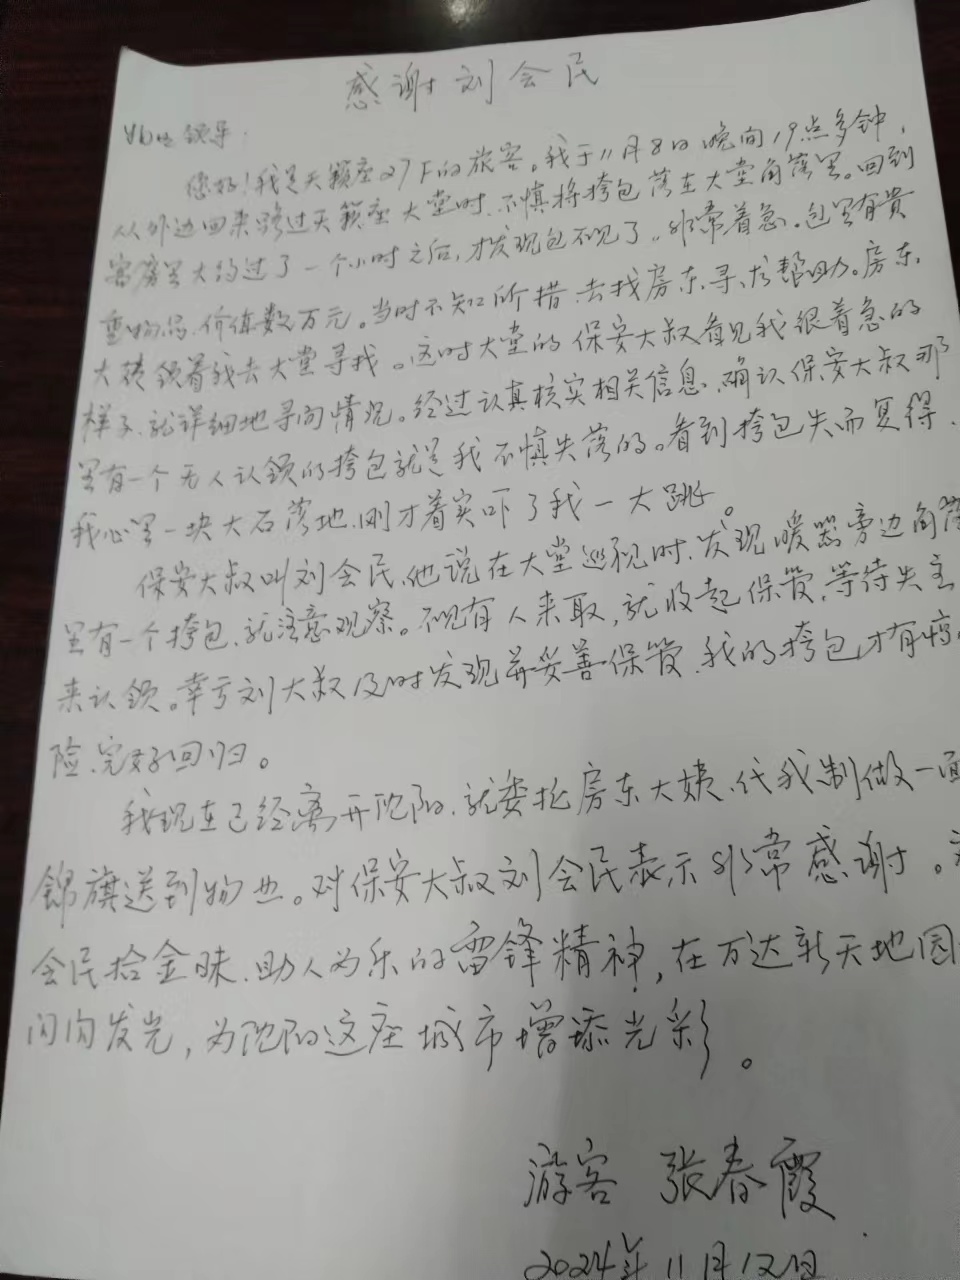 感谢刘会民
领导：
您好！我是天籁座27F的旅客。我于11月8日晚间19点多钟，
从外边回来路过天籁座大堂时，不慎将挎包落在大堂角落里。回到
客房里大约过了一个小时之后，才发现包不见了，非常着急。包里有贵
重物品，价值数万元。当时不知所措，去找房东寻求帮助。房东
大姨领着我去大堂寻找。这时大堂的保安大叔看见我很着急的
样子，就详细地寻问情况。经过认真核实相关信息，确认保安大叔那
里有一个无人认领的挎包就是我不慎失落的。看到挎包失而复得，
我心里一块大石落地，刚才着实吓了我一大跳。
保安大叔叫刘会民，他说在大堂巡视时，发现暖器旁边角落
里有一个挎包，就注意观察。不见有人来取，就收起保管，等待失主
来认领。幸亏刘大叔及时发现并妥善保管，我的挎包才有惊
险，完好回归。
我现在已经离开沈阳，就委托房东大姨，代我制做一面
锦旗送到物业。对保安大叔刘会民表示非常感谢。
会民拾金昧，助人为乐的雷锋精神，在万达新天地园
闪闪发光，为沈阳这座城市增添光彩。
游客 张春霞
2024年11月12日